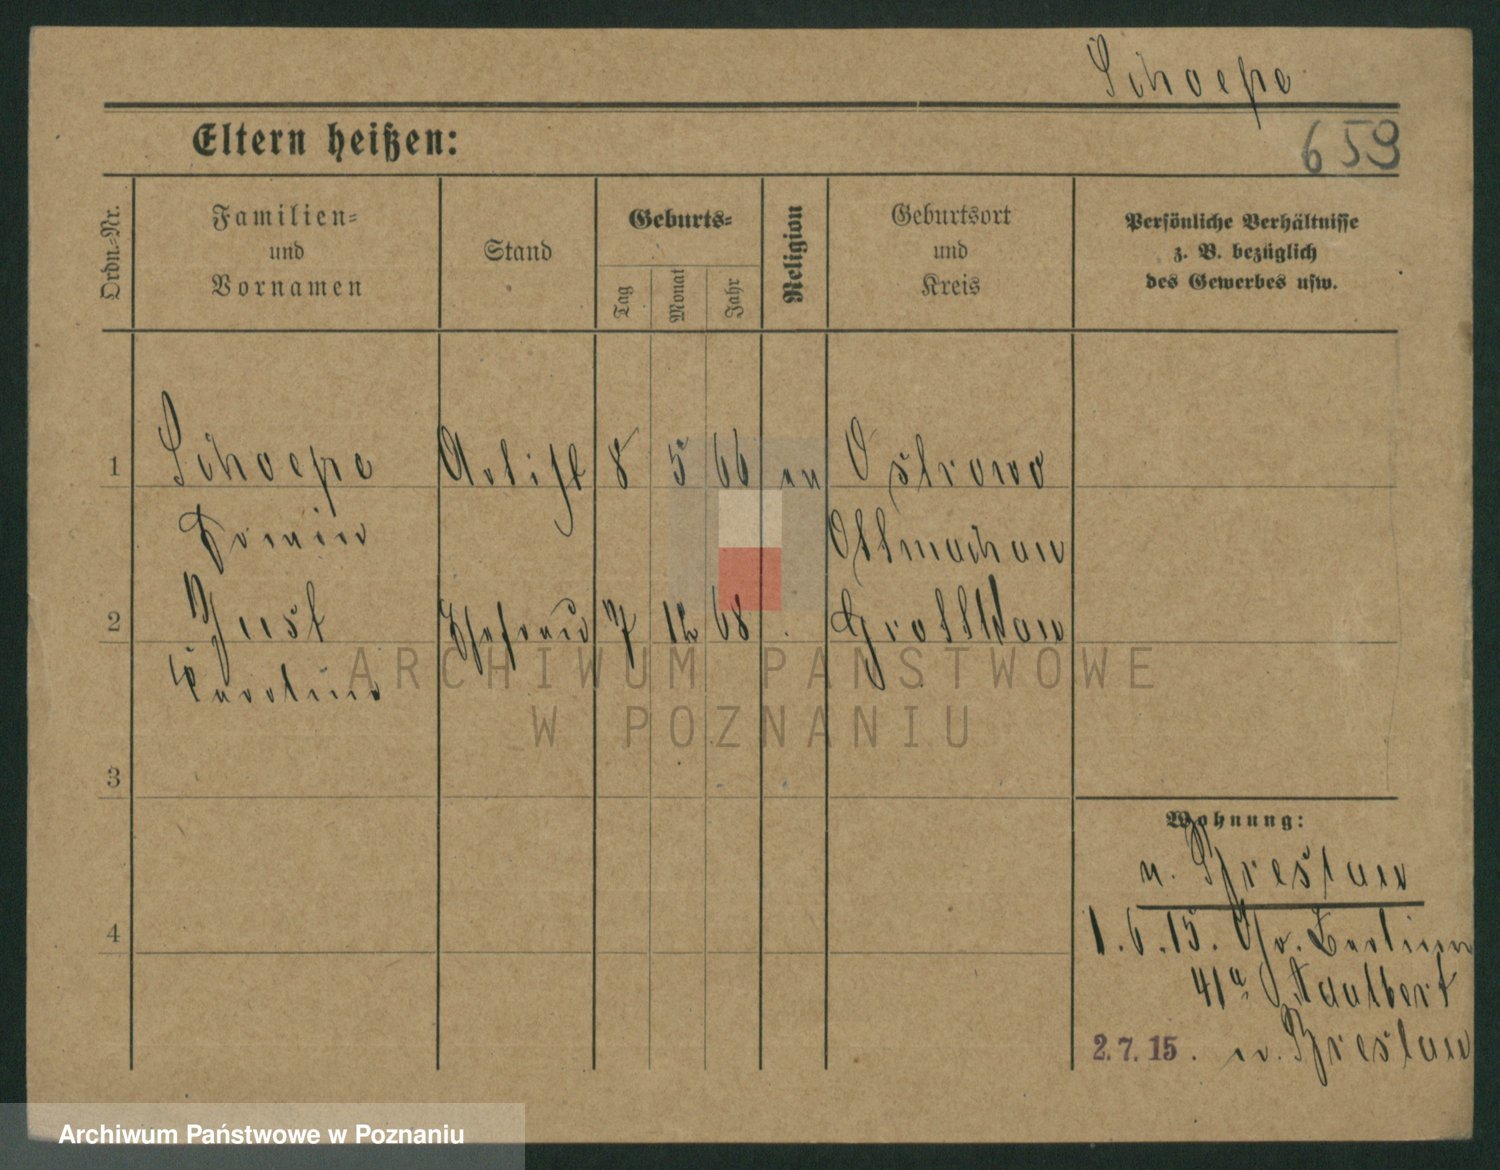 Schoepe
Eltern heißen:
659
Ordn.-Nr.
Familien-
und
Vornamen
Stand
Geburts-
Tag
Monat
Jahr
Religion
Geburtsort
und
Kreis
Persönliche Verhältnisse
z. B. bezüglich
des Gewerbes usw.
1
Schoepe
Artist
8 5 66
ev
Ostrowo
Ottmachau
2
Just
Ehefrau
7 12 68
Grottkau
Karoline
3
4
Wohnung:
n. Breslau
1.6.15. Gr. Berliner
41a Adalbert
2.7.15. n. Breslau
ARCHIWUM PAŃSTWOWE
W POZNANIU
Archiwum Państwowe w Poznaniu